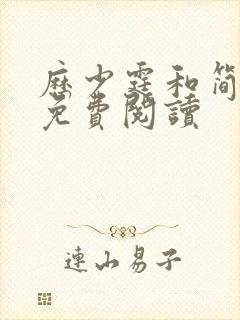 历少霆和简
免費閱讀
連山易子